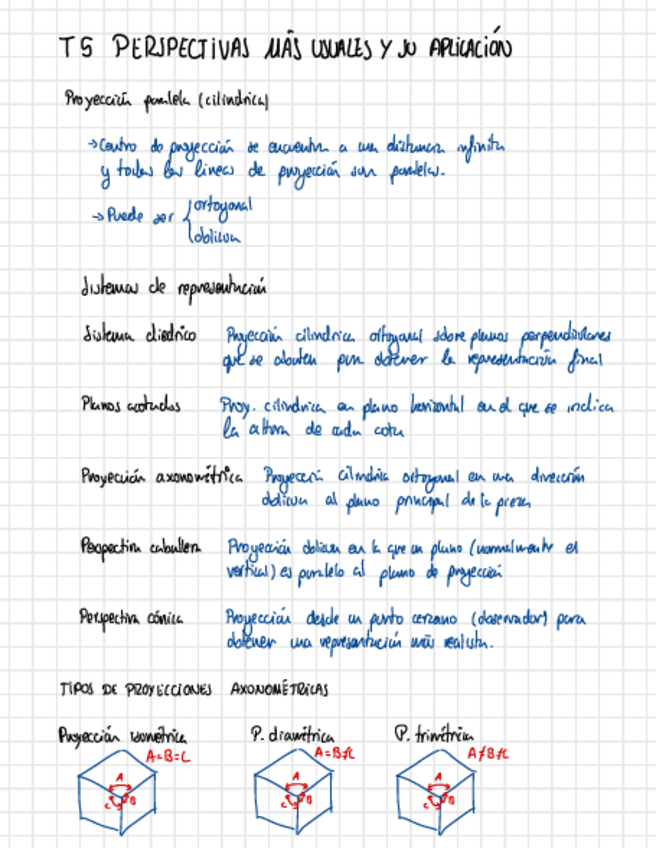 T5 PERSPECTIVAS MÁS USUALES Y SU APLICACIÓN
Proyección paralela (cilíndrica)
→ Centro de proyección se encuentra a una distancia infinita
y todas las líneas de proyección son paralelas.
→ Puede ser { ortogonal
oblicua
Sistemas de representación
Sistema diédrico Proyección cilíndrica ortogonal sobre planos perpendiculares
que se abaten para obtener la representación final
Planos acotados Proy. cilíndrica en plano horizontal en el que se indica
la altura de cada cota
Proyección axonométrica Proyección cilíndrica ortogonal en una dirección
oblicua al plano principal de la pieza
Perspectiva caballera Proyección oblicua en la que un plano (normalmente el
vertical) es paralelo al plano de proyección
Perspectiva cónica Proyección desde un punto cercano (observador) para
obtener una representación más realista.
TIPOS DE PROYECCIONES AXONOMÉTRICAS
Proyección isométrica P. diamétrica P. trimétrica
A=B=C A=B≠C A≠B≠C
A A A
C B C B C B